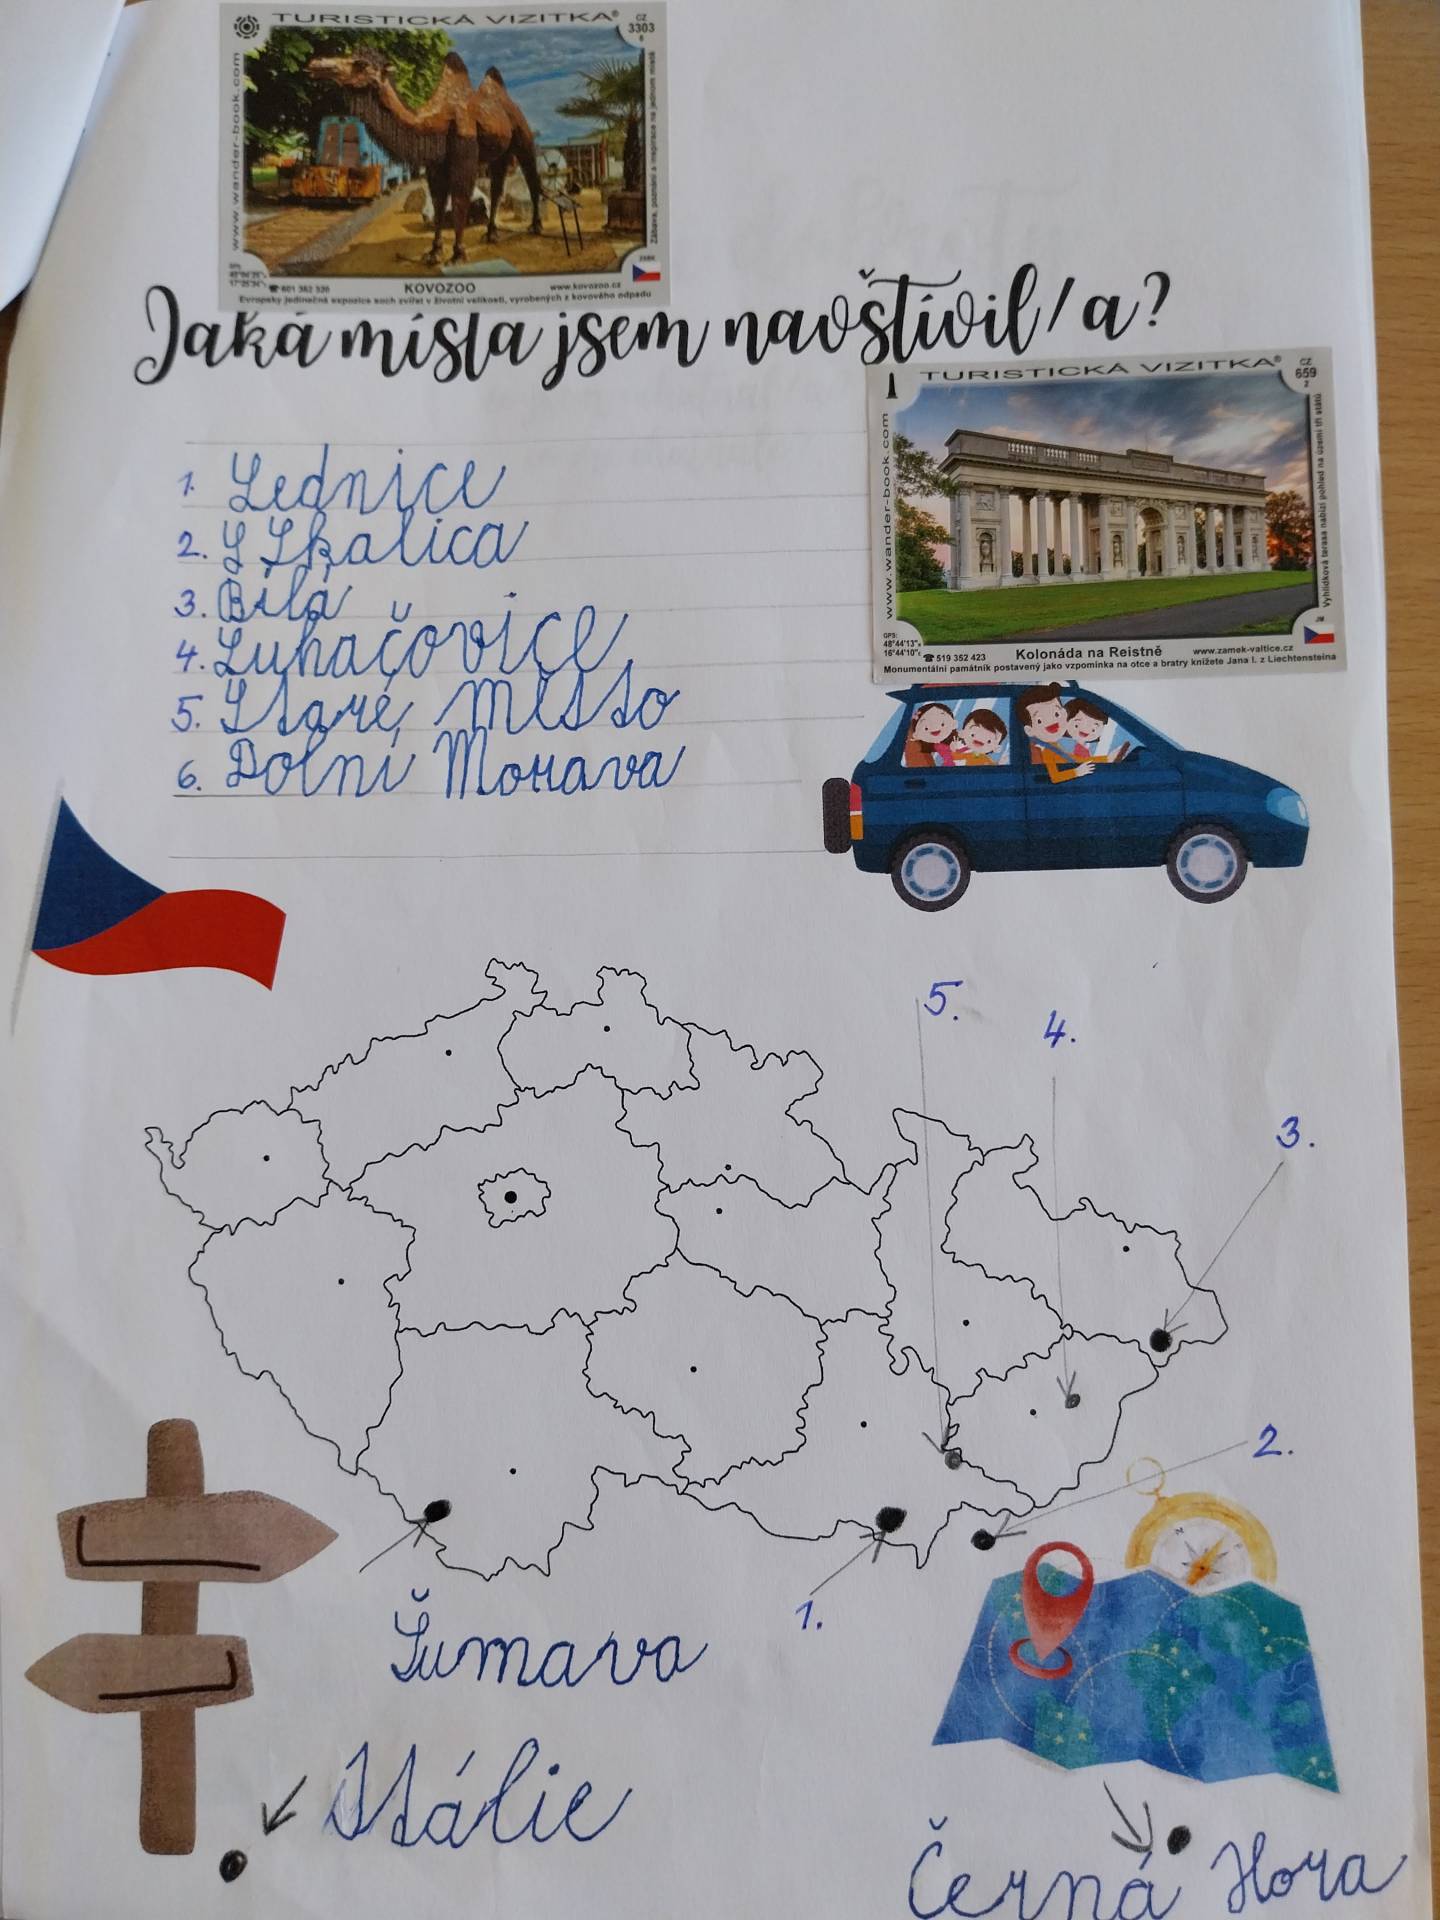 TURISTICKÁ VIZITKA®
CZ
3303
6
www.wander-book.com
Zábava, poznání a inspirace na jednom místě
GPS:
☎ 601 362 320
KOVOZOO
www.kovozoo.cz
Evropsky jedinečná expozice soch zvířat v životní velikosti, vyrobených z kovového odpadu
Jaká místa jsem navštívil/a?
TURISTICKÁ VIZITKA®
CZ
659
2
www.wander-book.com
Vyhlídková terasa nabízí pohled na území tří států
JM
GPS:
48°44'13"N
16°44'10"E
☎ 519 352 423
Kolonáda na Reistně
www.zamek-valtice.cz
Monumentální památník postavený jako vzpomínka na otce a bratry knížete Jana I. z Liechtensteina
1. Lednice
2. S Skalica
3. Bílá
4. Luhačovice
5. Staré Město
6. Dolní Morava
5.
4.
3.
2.
1.
N
Šumava
Itálie
Černá Hora